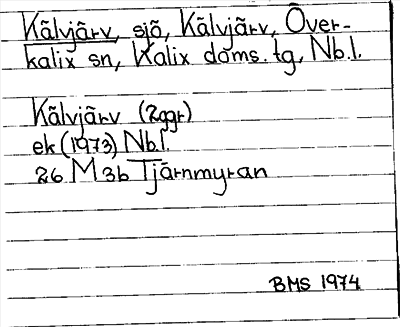 Kälvjärv, sjö, Kälvjärv, Över-
kalix sn, Kalix doms. tg, Nb.l.
Kälvjärv (2ggr)
ek (1973) Nb.l.
26 M 3b Tjärnmyran
BMS 1974